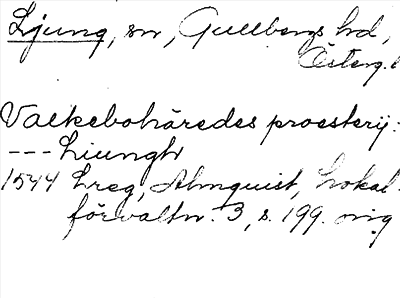 Ljung, sn, Gullbergs hd,
Österg.l
Valkebohäredes proesterij:
--- Liungh
1544 Lreg, Almquist, Lokal-
förvaltn. 3, s. 199. mig